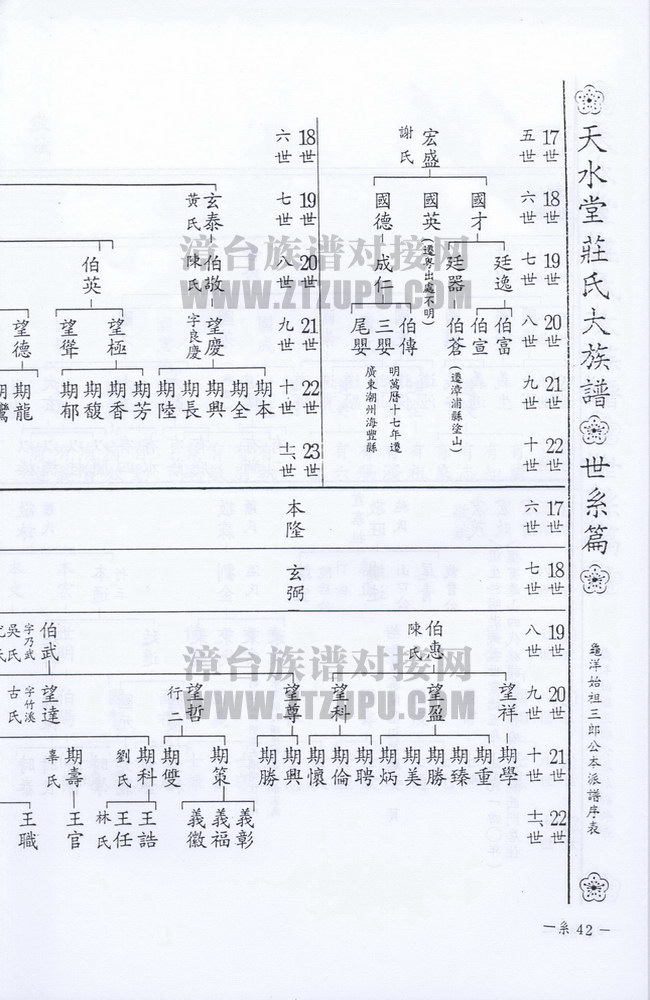 天水堂莊氏大族譜 世系篇
龜洋始祖三郎公本派譜序表
一系 42 一
17世 五世
宏盛 謝氏
18世 六世
國才
國英 (遷粵出處不明)
國德
19世 七世
廷逸
廷器
成仁
20世 八世
伯富
伯宣
伯蒼 (遷漳浦縣塗山)
伯傳
三嬰
尾嬰
明萬曆十七年遷
廣東潮州海豐縣
21世 九世
22世 十世
18世 六世
19世 七世
玄泰 黃氏
20世 八世
伯敬 陳氏
伯英
21世 九世
望慶 字良慶
望極
望聳
望德
22世 十世
期本
期全
期興
期長
期陸
期芳
期香
期馥
期郁
期龍
23世 十一世
17世 六世
本隆
18世 七世
玄弼
19世 八世
伯惠 陳氏
伯武 字乃武 吳氏
20世 九世
望祥
望盈
望科
望尊
望哲 行二
望達 字竹溪 古氏
21世 十世
期學
期重
期臻
期勝
期美
期炳
期聘
期倫
期懷
期興
期勝
期策
期雙
期科 劉氏
期壽 辜氏
22世 十一世
義彰
義福
義徽
王誥
王任 林氏
王官
王職
漳台族谱对接网
WWW.ZTZUPU.COM
漳台族谱对接网
WWW.ZTZUPU.COM